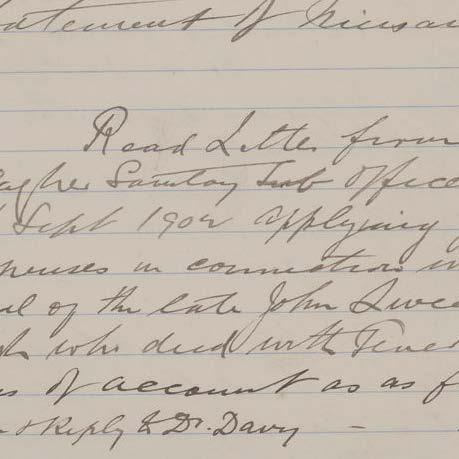 atement of
Read Letter from
agher Sanitary Sub Office
Sept 1902 applying
penses in connection
al of the late John Swee
who died with Fever
s of account as as f
Reply to Dr. Davy —